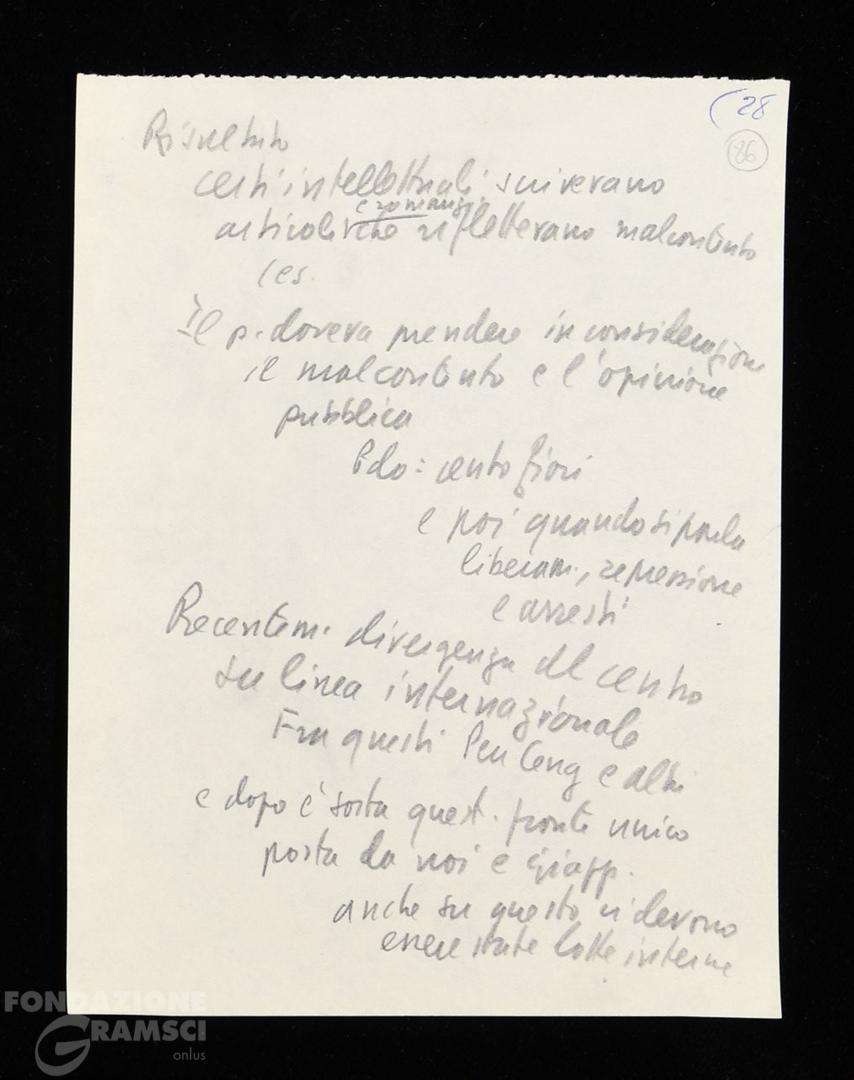 (28
86
Risultato
certi intellettuali scrivevano
e romanzi
articoli che riflettevano malcontento
(es.
Il p. doveva prendere in considerazione
il malcontento e l'opinione
pubblica
cento fiori
e poi quando si parla
liberam., repressione
e arresti
Recentem. divergenza al centro
su linea internazionale
Fra questi Pen Ceng e altri
e dopo è sorta quest. fronte unico
posta da noi e giapp.
anche su questo vi devono
essere state lotte interne
FONDAZIONE
GRAMSCI
onlus